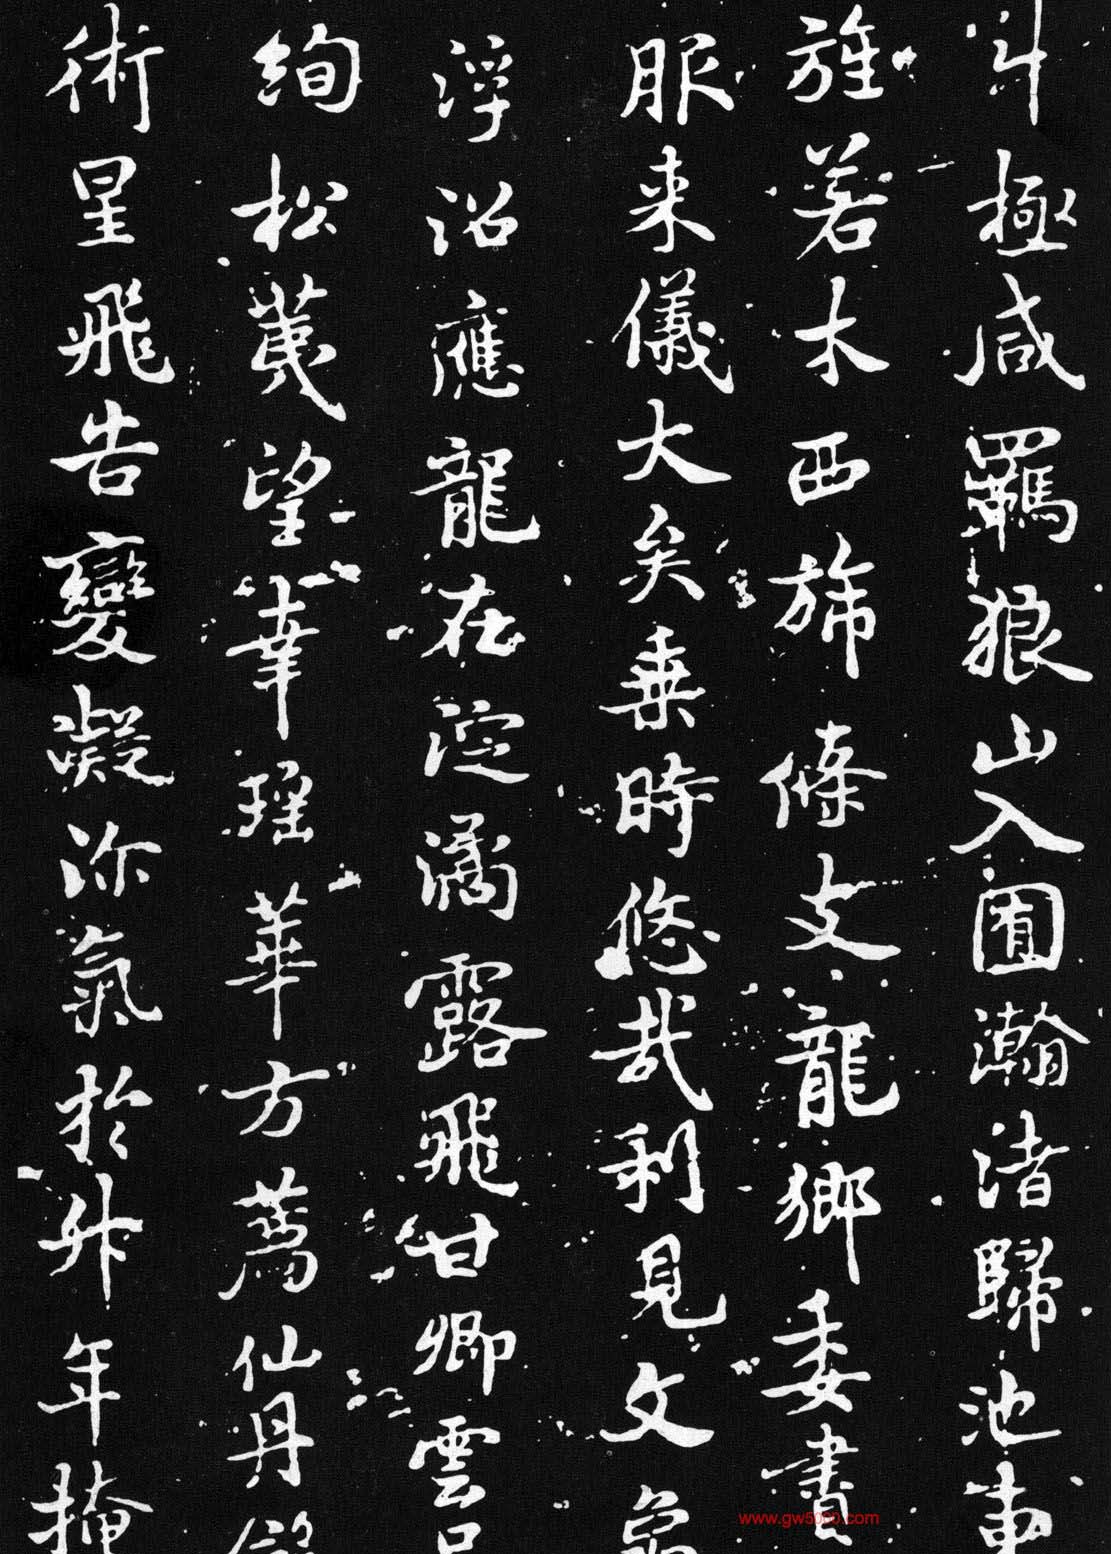 斗極咸羈狼山入囿瀚渚歸池事
旌若木西旆條支龍鄉委書
服来儀大矣乗時悠哉利見文
浮沼應龍在淀潏露飛甘卿雲呈
絢松蕢望幸瑤華方薦仙丹
術星飛告變凝沴氣於升年掩
www.gw5000.com